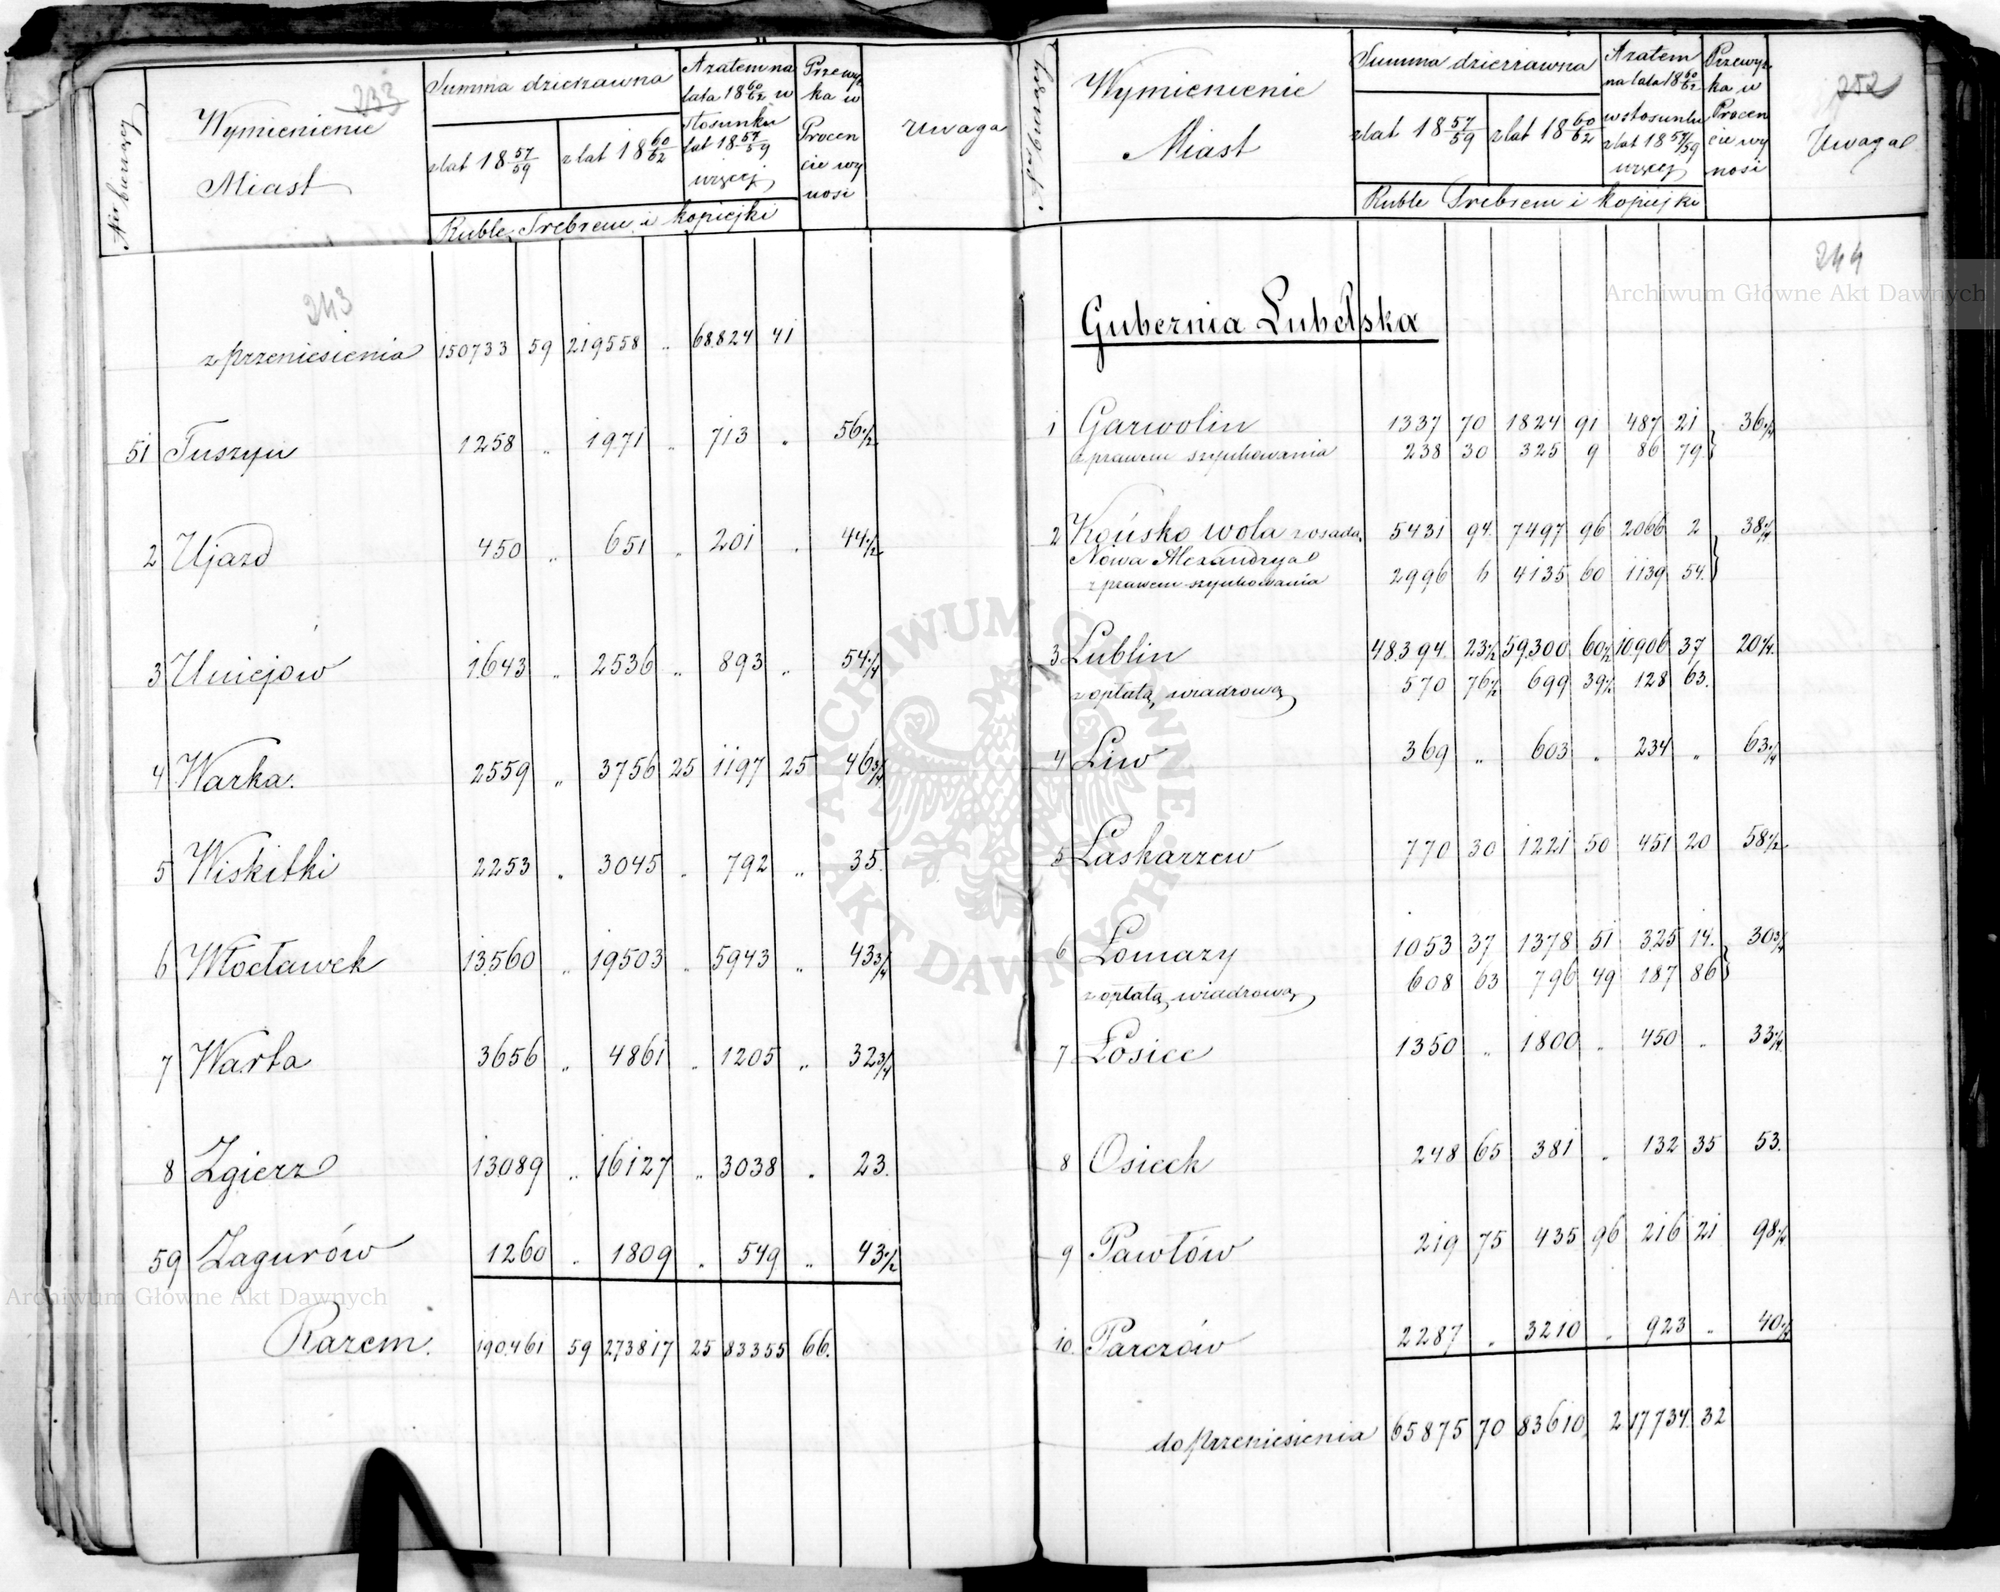 233
№ bieżący
Wymienienie Miast
Summa dzierżawna
z lat 18 57/59
z lat 18 60/62
A zatem na lata 18 60/62 w stosunku lat 18 57/59 więcej
Przewyżka w Procencie wynosi
Uwaga
Ruble Srebrem i kopiejki
243
z przeniesienia 150733 59 219558 „ 68.824 41
51 Tuszyn 1258 „ 1971 „ 713 „ 56 1/2
2 Ujazd 450 „ 651 „ 201 „ 44 1/2
3 Uniejów 1643 „ 2536 „ 893 „ 54 1/4
4 Warka. 2559 „ 3756 25 1197 25 46 3/4
5 Wiskitki 2253 „ 3045 „ 792 „ 35.
6 Włocławek 13.560 „ 19503 „ 5943 „ 43 3/4
7 Warta 3656 „ 4861 „ 1205 „ 32 3/4
8 Zgierz 13089 „ 16127 „ 3038 „ 23.
59 Zagurów 1260 „ 1809 „ 549 „ 43 1/2
Razem. 190.461 59 273817 25 83355 66.
252
№ bieżący
Wymienienie Miast
Summa dzierżawna
z lat 18 57/59
z lat 18 60/62
A zatem na lata 18 60/62 w stosunku z lat 18 57/59 więcej
Przewyżka w Procencie wynosi
Uwaga
Ruble Srebrem i kopiejki
244
Gubernia Lubelska
1 Garwolin 1337 70 1824 91 487 21 36 1/4
z prawem szynkowania 238 30 325 9 86 79
2 Końsko wola z osadą 5431 94 7497 96 2066 2 38 1/4
Nowa Alexandrya
z prawem szynkowania 2996 6 4135 60 1139 54.
3 Lublin 48.394. 23 1/2 59.300 60 1/2 10.906 37 20 1/4.
z opłatą wiadrową 570 76 1/2 699 39 1/2 128 63.
4 Liw 369 „ 603 „ 234 „ 63 1/4
5 Łaskarzew 770 30 1221 50 451 20 58 1/2
6 Łomazy 1053 37 1378 51 325 14. 30 3/4
z opłatą wiadrową 608 63 796 49 187 86
7 Łosice 1350 „ 1800 „ 450 „ 33 1/4
8 Osieck 248 65 381 „ 132 35 53.
9 Pawłów 219 75 435 96 216 21 98 1/4
10. Parczów 2287 „ 3210 „ 923 „ 40 1/4
do przeniesienia 65875 70 83610 2 17734. 32
Archiwum Główne Akt Dawnych
ARCHIWUM GŁÓWNE AKT DAWNYCH
Archiwum Główne Akt Dawnych